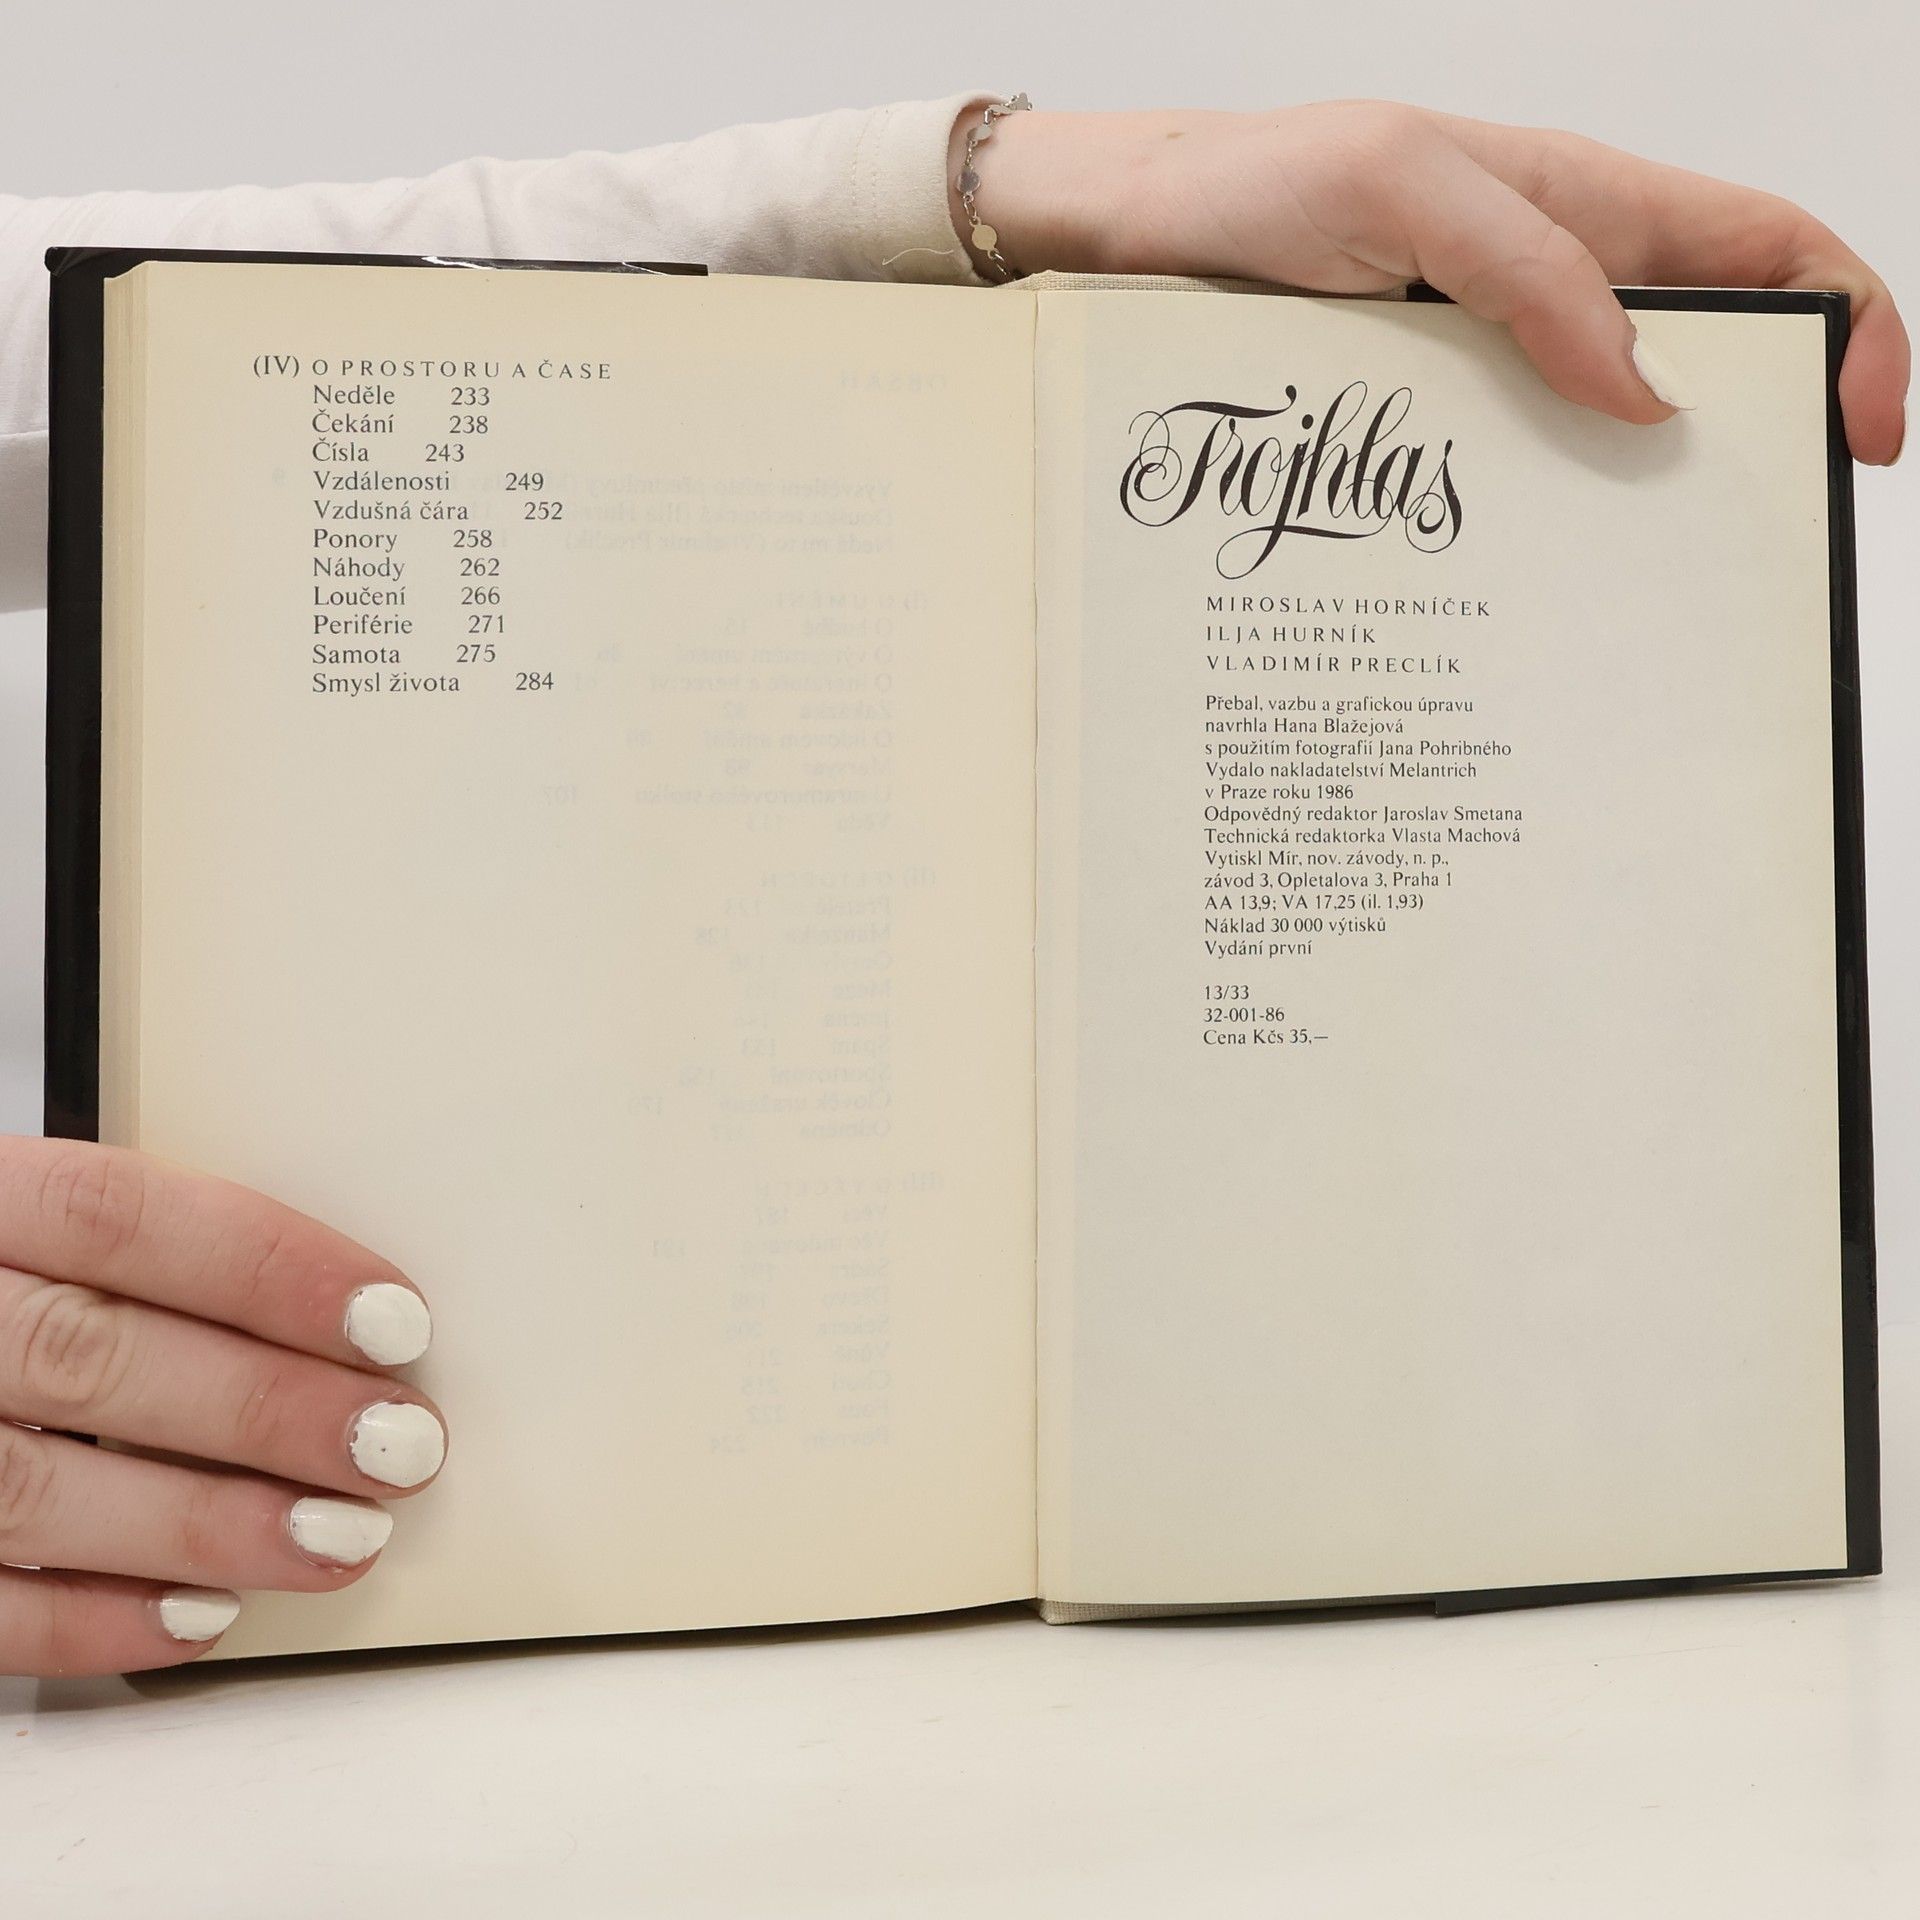 (IV) O PROSTORU A ČASE
Neděle 233
Čekání 238
Čísla 243
Vzdálenosti 249
Vzdušná čára 252
Ponory 258
Náhody 262
Loučení 266
Periférie 271
Samota 275
Smysl života 284
Trojhlas
MIROSLAV HORNÍČEK
ILJA HURNÍK
VLADIMÍR PRECLÍK
Přebal, vazbu a grafickou úpravu
navrhla Hana Blažejová
s použitím fotografií Jana Pohribného
Vydalo nakladatelství Melantrich
v Praze roku 1986
Odpovědný redaktor Jaroslav Smetana
Technická redaktorka Vlasta Machová
Vytiskl Mír, nov. závody, n. p.,
závod 3, Opletalova 3, Praha 1
AA 13,9; VA 17,25 (il. 1,93)
Náklad 30 000 výtisků
Vydání první
13/33
32-001-86
Cena Kčs 35,—